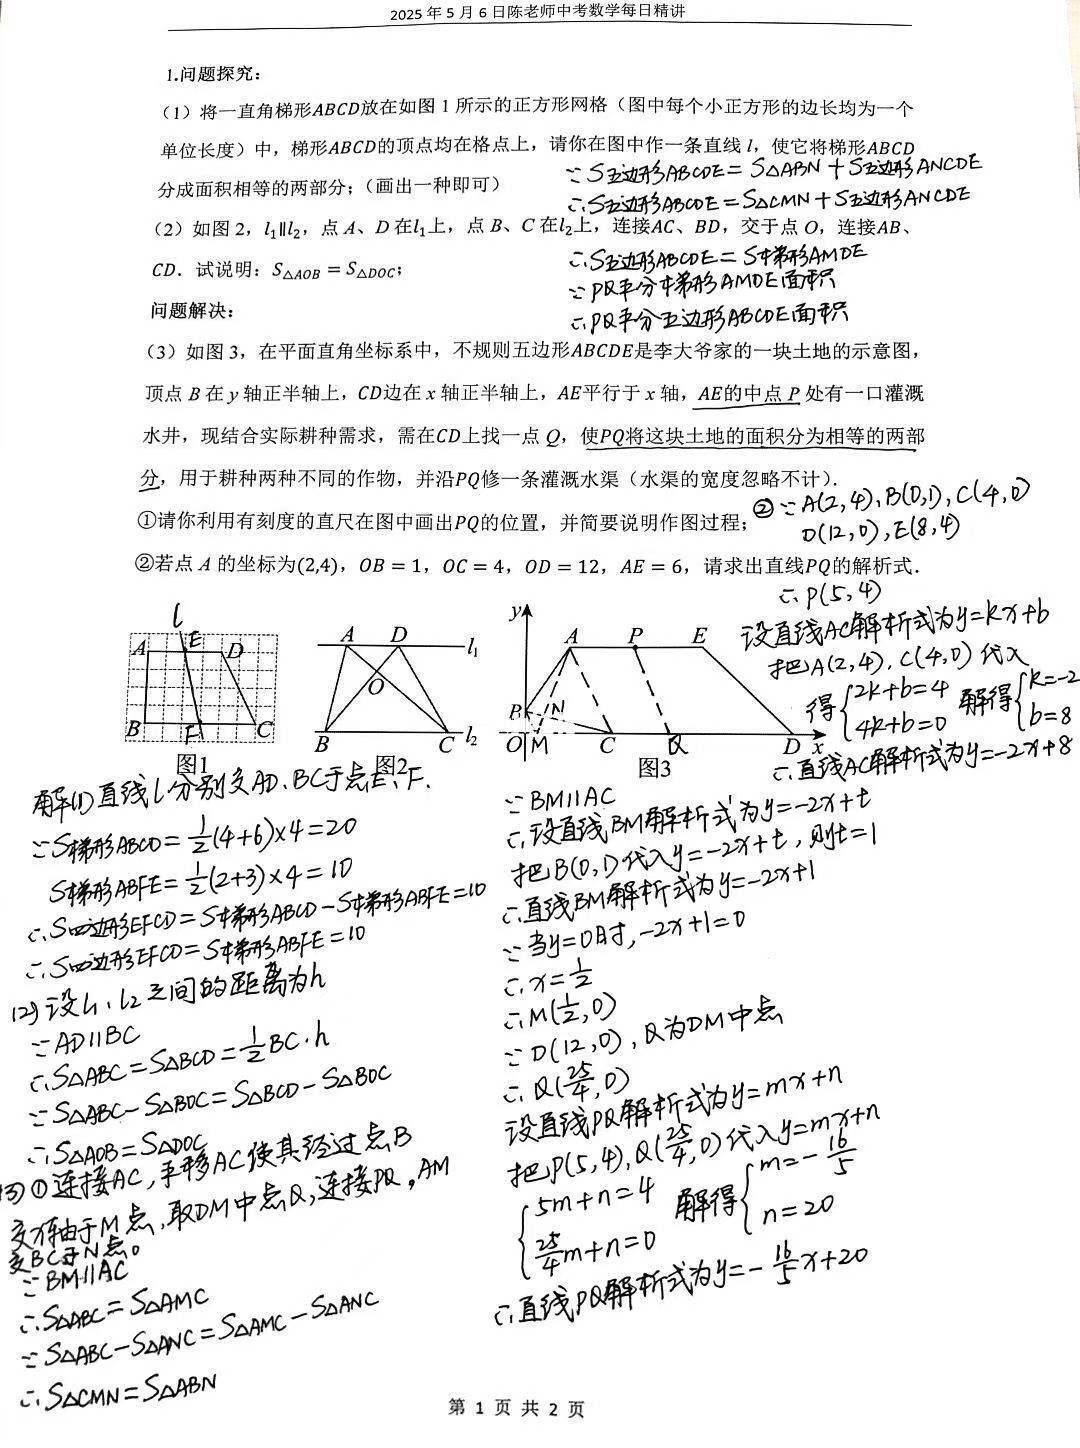 2025年5月6日陈老师中考数学每日精讲
1.问题探究：
（1）将一直角梯形ABCD放在如图1所示的正方形网格（图中每个小正方形的边长均为一个
单位长度）中，梯形ABCD的顶点均在格点上，请你在图中作一条直线l，使它将梯形ABCD
分成面积相等的两部分；（画出一种即可）
（2）如图2，l₁∥l₂，点A、D在l₁上，点B、C在l₂上，连接AC、BD，交于点O，连接AB、
CD．试说明：S△AOB = S△DOC；
问题解决：
（3）如图3，在平面直角坐标系中，不规则五边形ABCDE是李大爷家的一块土地的示意图，
顶点B在y轴正半轴上，CD边在x轴正半轴上，AE平行于x轴，AE的中点P处有一口灌溉
水井，现结合实际耕种需求，需在CD上找一点Q，使PQ将这块土地的面积分为相等的两部
分，用于耕种两种不同的作物，并沿PQ修一条灌溉水渠（水渠的宽度忽略不计）．
①请你利用有刻度的直尺在图中画出PQ的位置，并简要说明作图过程；
②若点A的坐标为(2,4)，OB = 1，OC = 4，OD = 12，AE = 6，请求出直线PQ的解析式．
l
A E D
B F C
图1
A D l₁
O
B C l₂
图2
y
A P E
B N
O M C Q D x
图3
解(1)直线l分别交AD、BC于点E、F.
∵S梯形ABCD=1/2(4+6)×4=20
S梯形ABFE=1/2(2+3)×4=10
∴S四边形EFCD=S梯形ABCD-S梯形ABFE=10
∴S四边形EFCD=S梯形ABFE=10
(2)设l₁、l₂之间的距离为h
∵AD∥BC
∴S△ABC=S△BCD=1/2BC·h
∵S△ABC-S△BOC=S△BCD-S△BOC
∴S△AOB=S△DOC
(3)①连接AC,平移AC使其经过点B
交x轴于M点,取DM中点Q,连接PQ,AM
交BC于N点。
∵BM∥AC
∴S△ABC=S△AMC
∵S△ABC-S△ANC=S△AMC-S△ANC
∴S△CMN=S△ABN
∵S五边形ABCDE=S△ABN+S五边形ANCDE
∴S五边形ABCDE=S△CMN+S五边形ANCDE
∴S五边形ABCDE=S梯形AMDE
∵PQ平分梯形AMDE面积
∴PQ平分五边形ABCDE面积
②∵A(2,4),B(0,1),C(4,0)
D(12,0),E(8,4)
∴P(5,4)
设直线AC解析式为y=kx+b
把A(2,4),C(4,0)代入
得{2k+b=4 4k+b=0 解得{k=-2 b=8
∴直线AC解析式为y=-2x+8
∵BM∥AC
∴设直线BM解析式为y=-2x+t
把B(0,1)代入y=-2x+t,则t=1
∴直线BM解析式为y=-2x+1
∵当y=0时,-2x+1=0
∴x=1/2
∴M(1/2,0)
∵D(12,0),Q为DM中点
∴Q(25/4,0)
设直线PQ解析式为y=mx+n
把P(5,4),Q(25/4,0)代入y=mx+n
{5m+n=4 25/4m+n=0 解得{m=-16/5 n=20
∴直线PQ解析式为y=-16/5x+20
第 1 页 共 2 页